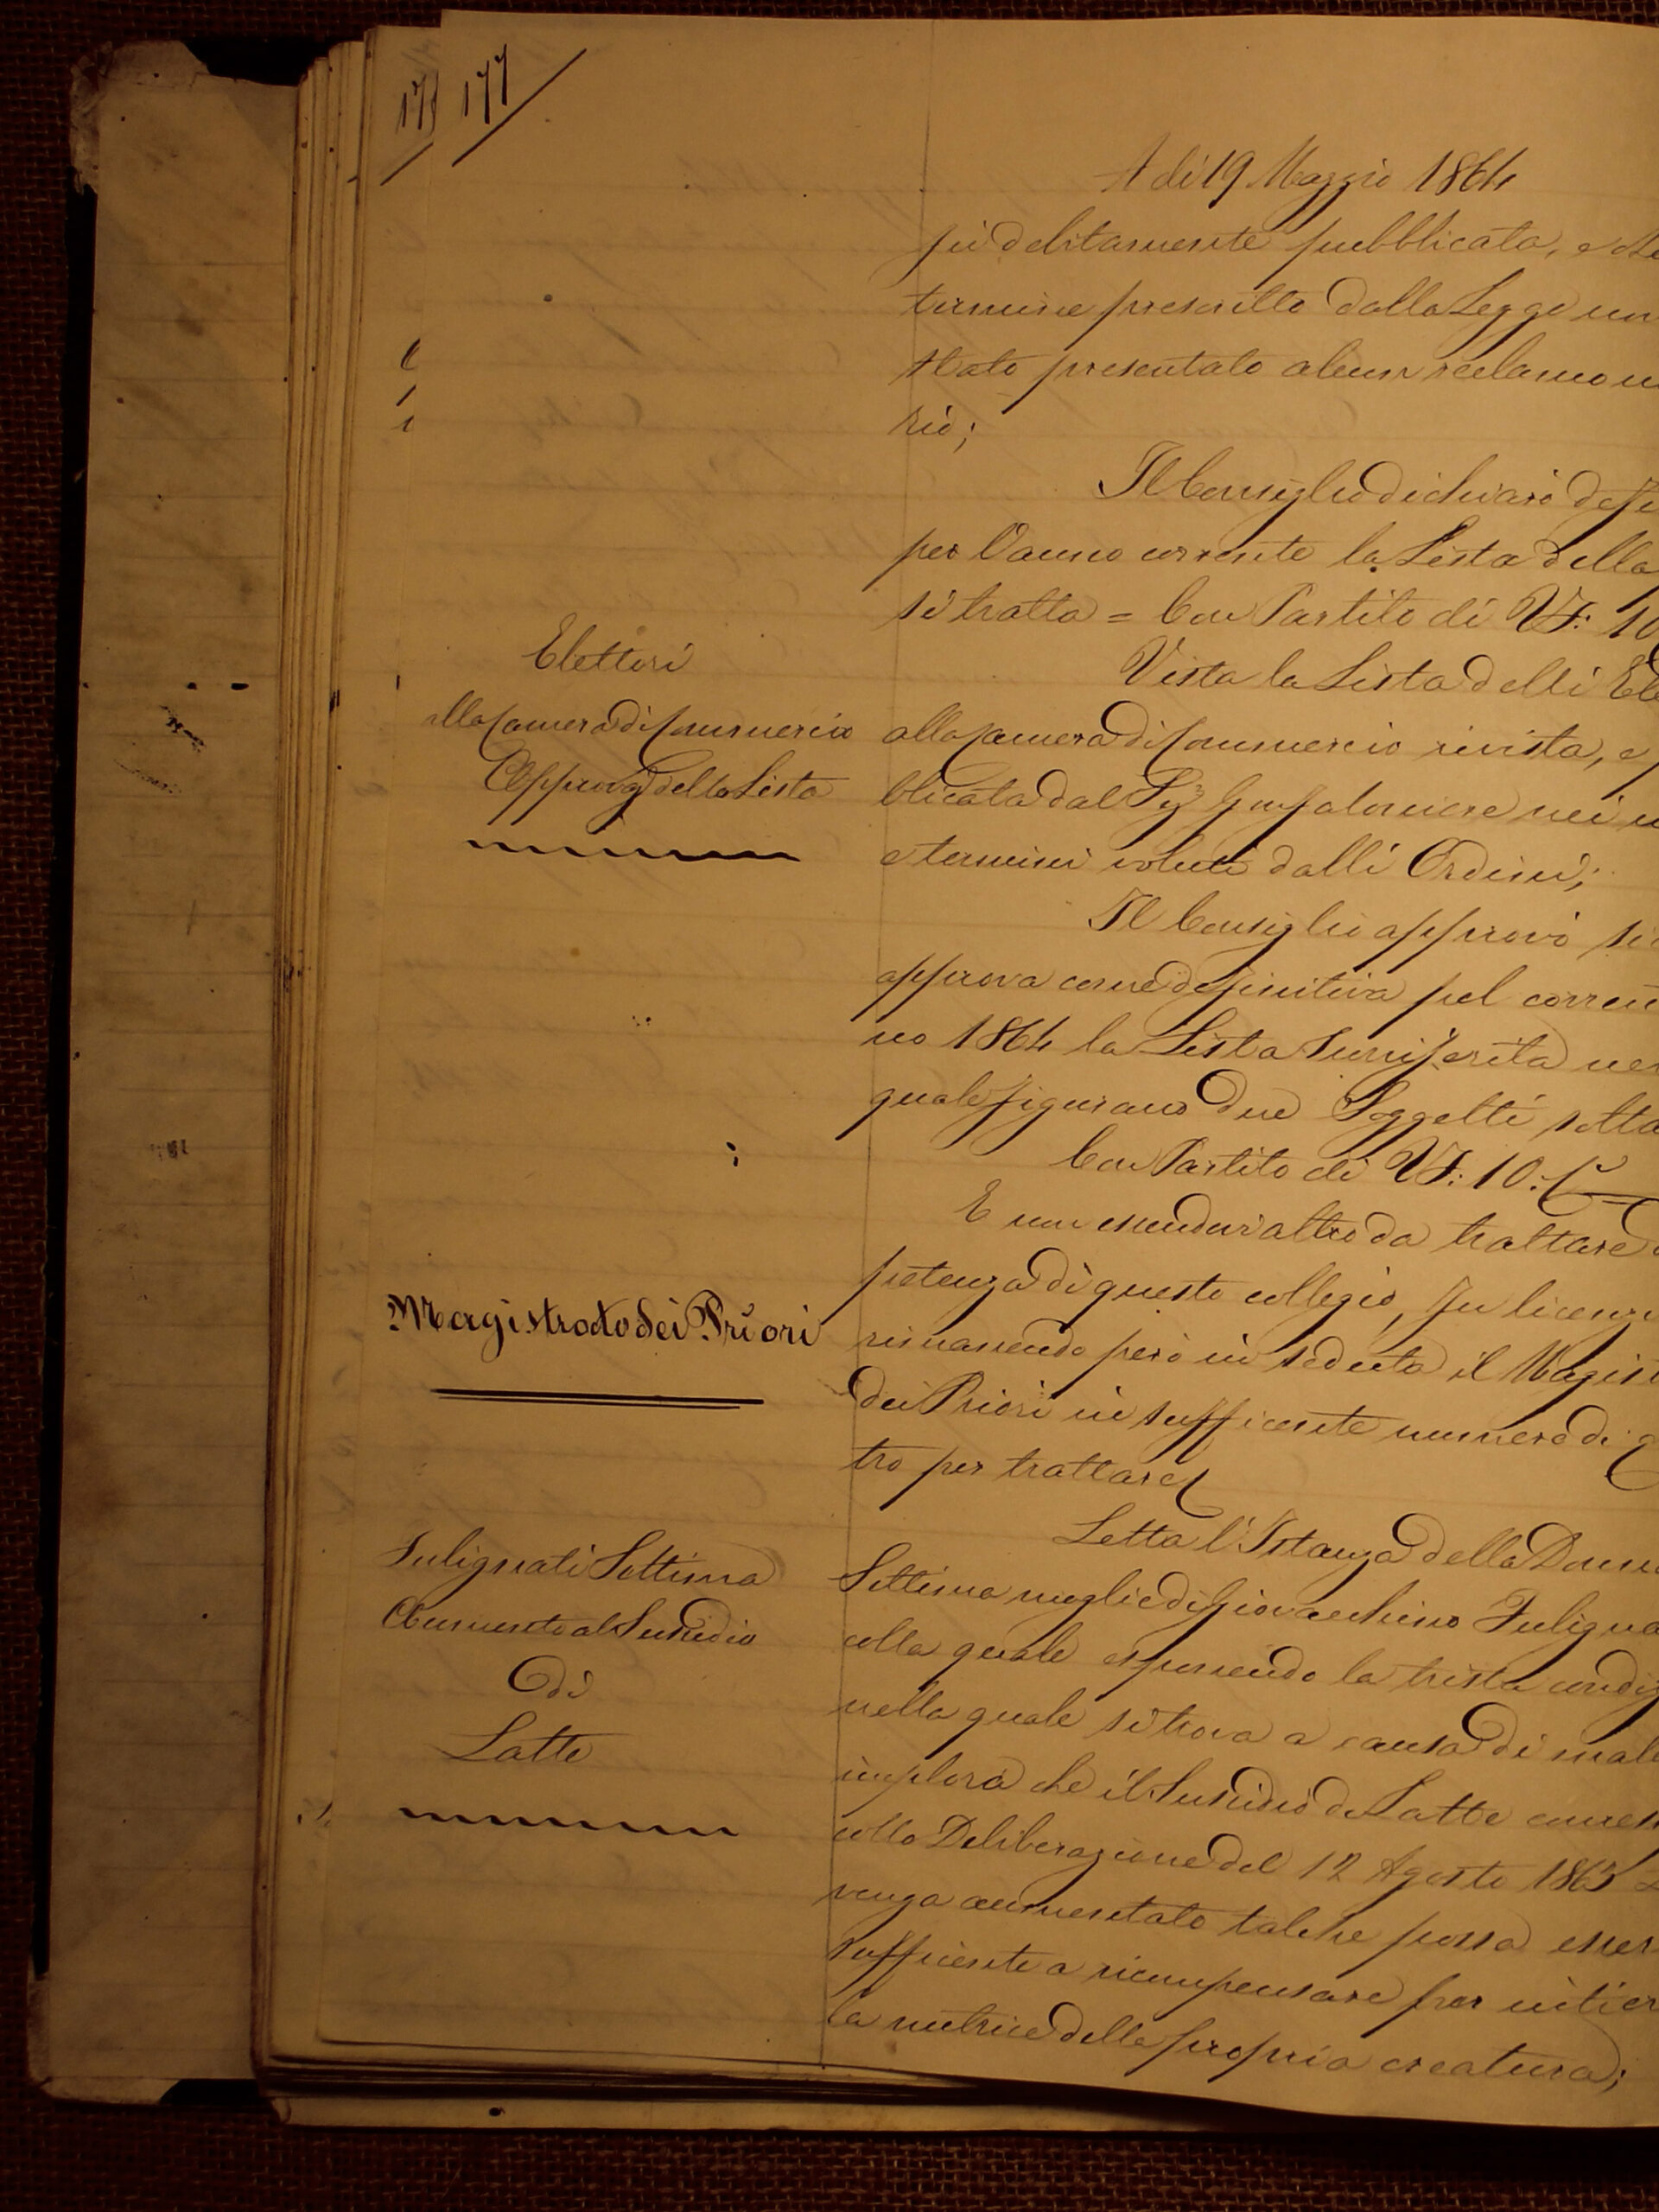 175 177
A dì 19 Maggio 1864
fù debitamente pubblicata, e
termine prescritto dalla Legge
stato presentato alcun reclamo
rio;
Il Consiglio dichiarò defi
per l'anno corrente la Lista della
si tratta = Con Partito di Vf: 10
Elettori
alla Camera di Commercio
Approvaz.e della Lista
Vista la Lista delli Ele
alla Camera di Commercio rivista, e p
blicata dal Sig.r Gonfaloniere nei
e termini voluti dalli Ordini;
Il Consiglio approvò si
approva come definitiva pel corren
no 1864 la Lista surriferita
quale figurano due Soggetti solta
Con Partito di Vf: 10:
E non essendovi altro da trattare
petenza di questo collegio, fu licenzi
Magistrato dei Priori
rimanendo però in seduta il Magist
dei Priori in sufficente numero di
tro per trattare
Fulignati Settima
Aumento al Sussidio
di
Latte
Letta l'Istanza della Donna
Settima moglie di Giovacchino Fuligna
colla quale esponendo la trista condiz
nella quale si trova a causa di mala
implora che il Sussidio di Latte
colla Deliberazione del 12 Agosto 1863
venga aumentato talche possa esser
sufficente a ricompensare per intier
la nutrice della propria creatura;